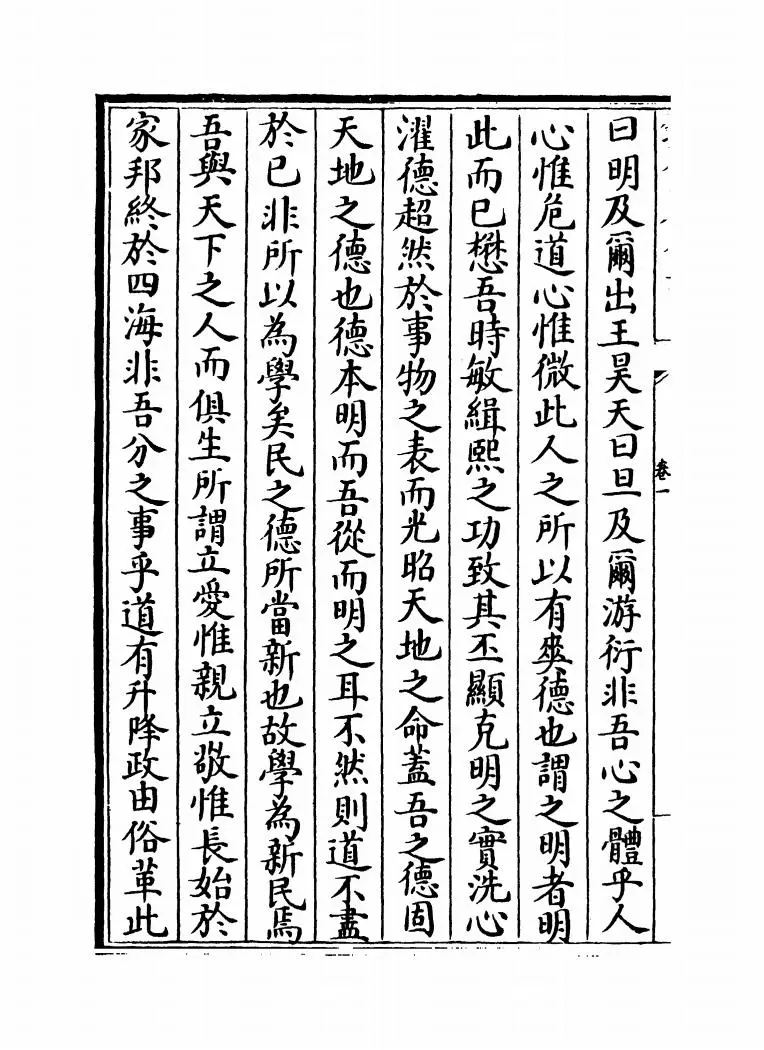 卷一
曰明及爾出王昊天曰旦及爾游衍非吾心之體乎人
心惟危道心惟微此人之所以有爽德也謂之明者明
此而已懋吾時敏緝熙之功致其丕顯克明之實洗心
濯德超然於事物之表而光昭天地之命蓋吾之德固
天地之德也德本明而吾從而明之耳不然則道不盡
於已非所以為學矣民之德所當新也故學為新民焉
吾與天下之人而俱生所謂立愛惟親立敬惟長始於
家邦終於四海非吾分之事乎道有升降政由俗革此